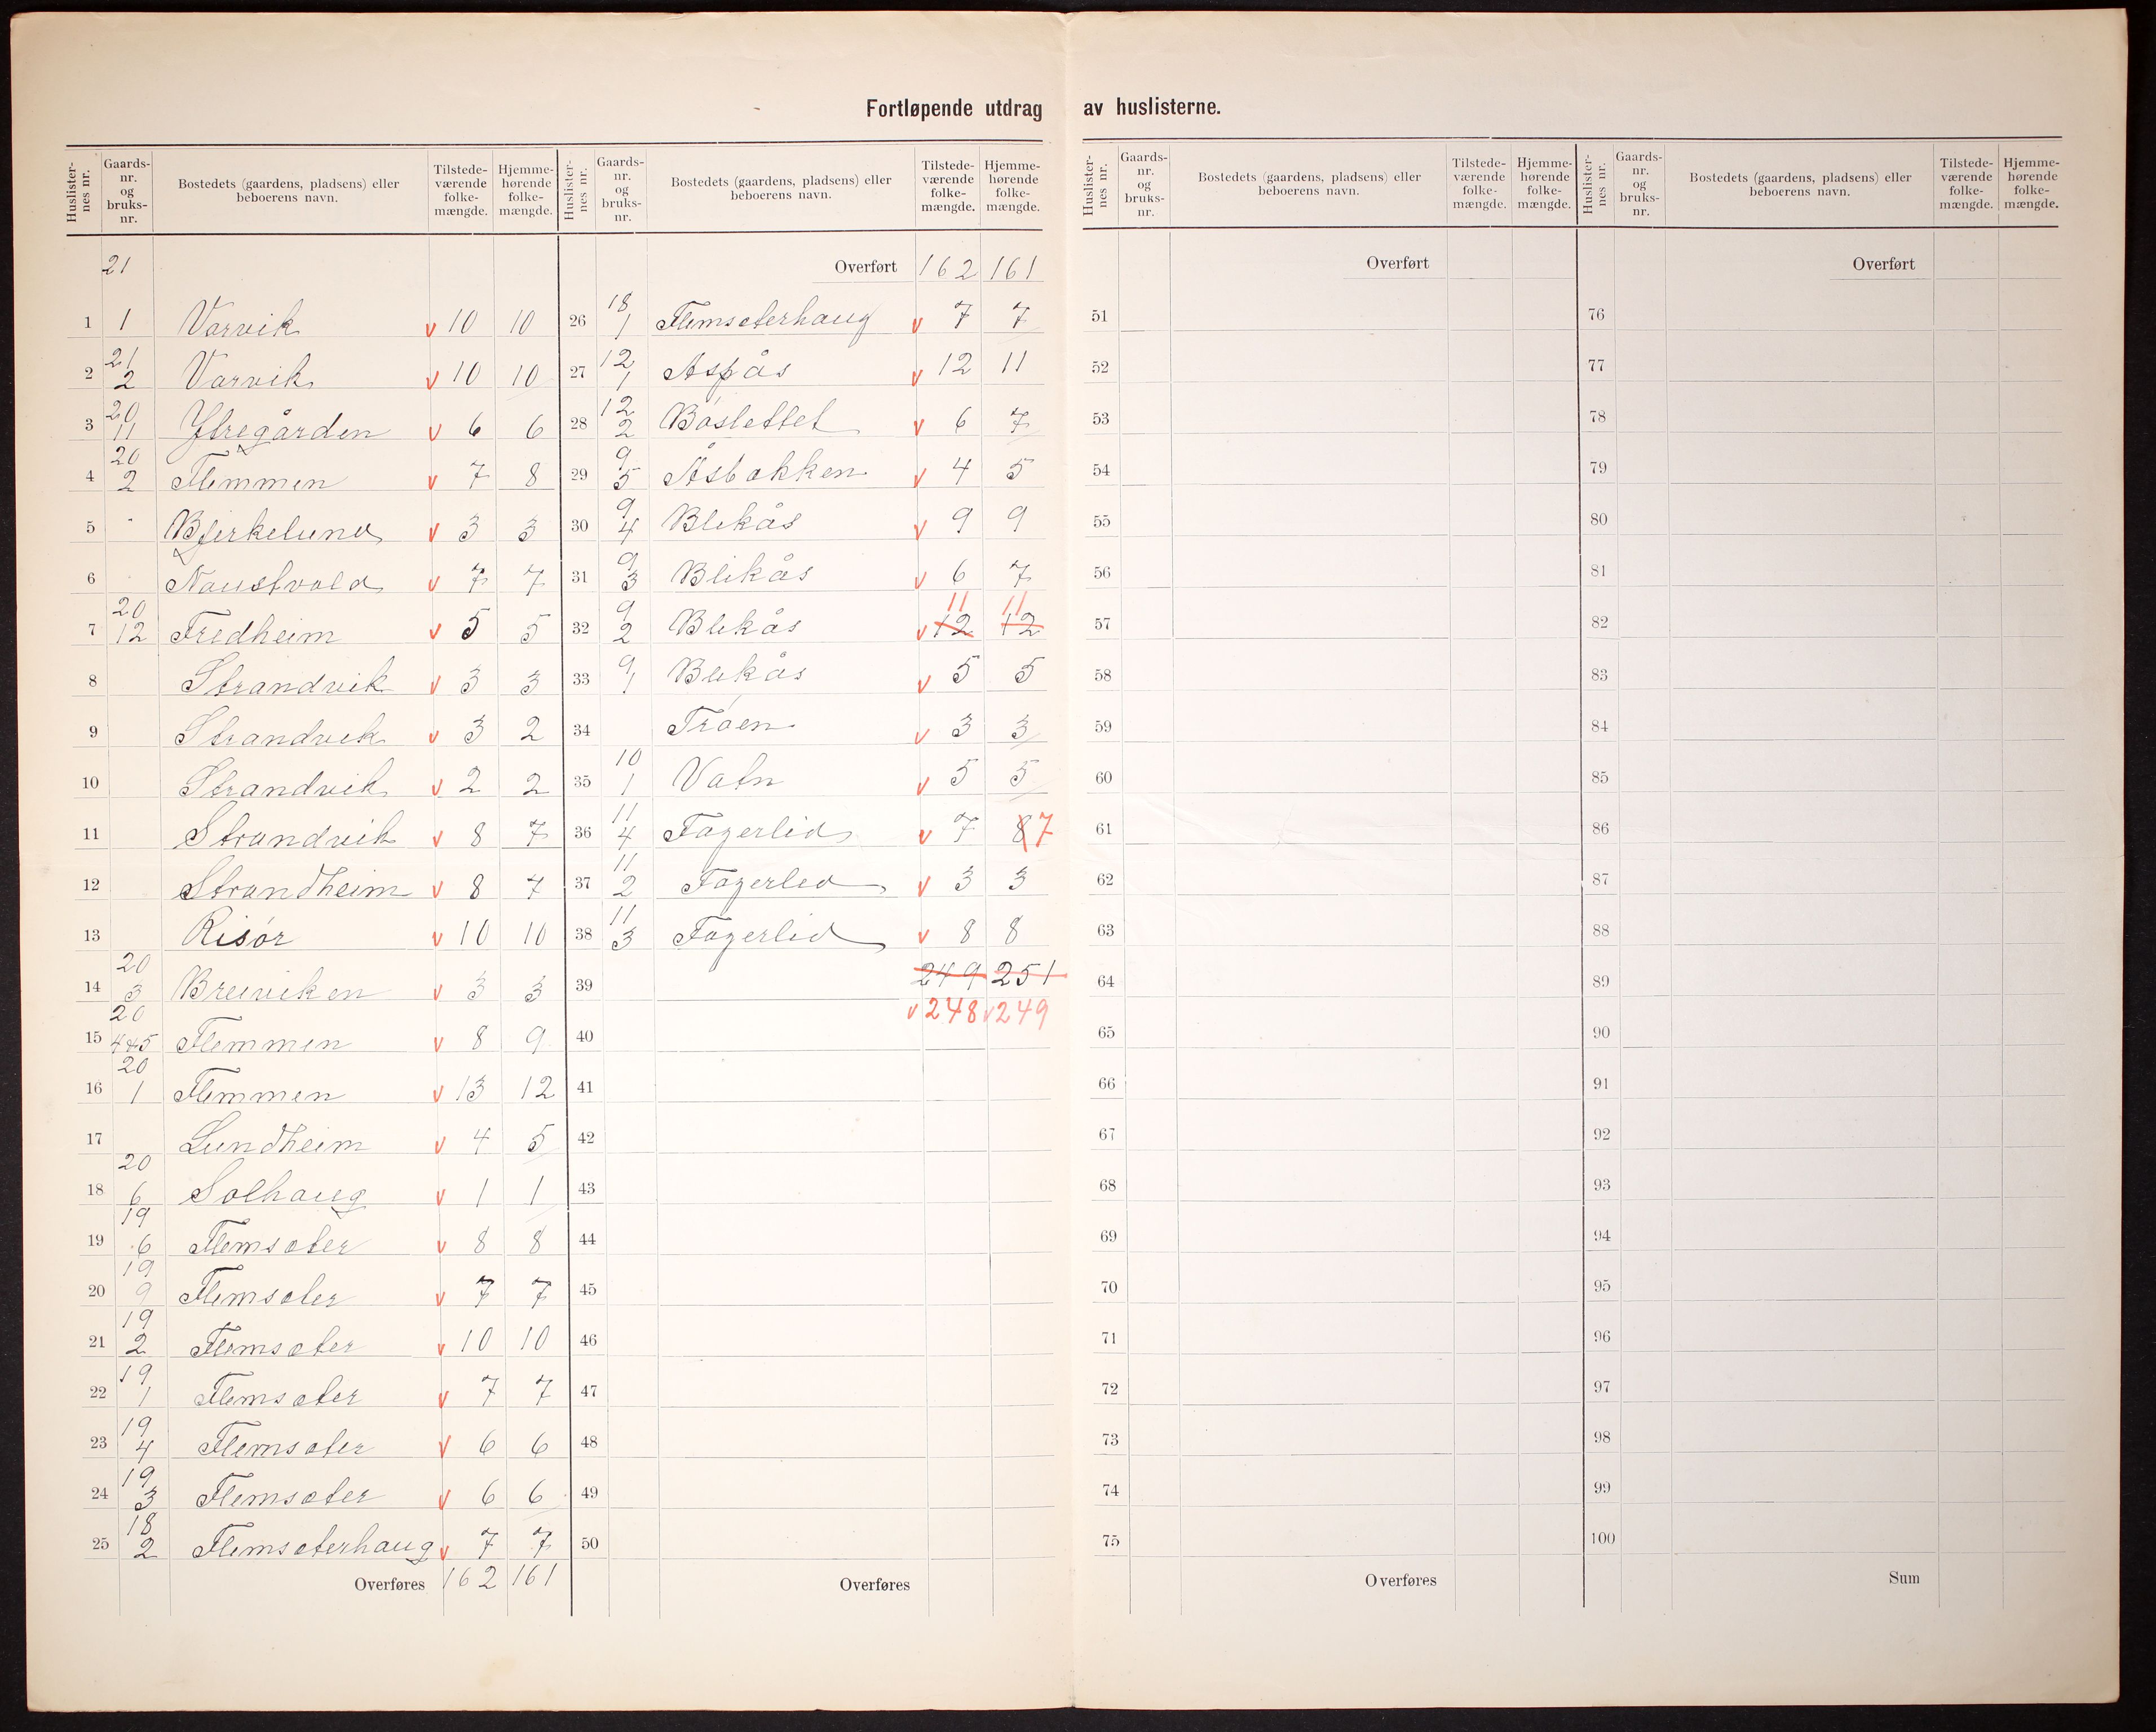 Fortløpende utdrag av huslisterne.
Huslisternes nr. | Gaards-nr. og bruks-nr. | Bostedets (gaardens, pladsens) eller beboerens navn. | Tilstede-værende folke-mængde. | Hjemme-hørende folke-mængde.
21
1 | 1 | Varvik | v 10 | 10
2 | 21 2 | Varvik | v 10 | 10
3 | 20 11 | Ytregården | v 6 | 6
4 | 20 2 | Flemmen | v 7 | 8
5 | " | Bjerkelund | v 3 | 3
6 | Naustvold | v 7 | 7
7 | 20 12 | Fredheim | v 5 | 5
8 | Strandvik | v 3 | 3
9 | Strandvik | v 3 | 2
10 | Strandvik | v 2 | 2
11 | Strandvik | v 8 | 7
12 | Strandheim | v 8 | 7
13 | Risør | v 10 | 10
14 | 20 3 | Breiviken | v 3 | 3
15 | 20 4+5 | Flemmen | v 8 | 9
16 | 20 1 | Flemmen | v 13 | 12
17 | Lundheim | v 4 | 5
18 | 20 6 | Solhaug | v 1 | 1
19 | 19 6 | Flemsæter | v 8 | 8
20 | 19 9 | Flemsæter | v 7 | 7
21 | 19 2 | Flemsæter | v 10 | 10
22 | 19 1 | Flemsæter | v 7 | 7
23 | 19 4 | Flemsæter | v 6 | 6
24 | 19 3 | Flemsæter | v 6 | 6
25 | 18 2 | Flemsæterhaug | v 7 | 7
Overføres 162 161
Huslisternes nr. | Gaards-nr. og bruks-nr. | Bostedets (gaardens, pladsens) eller beboerens navn. | Tilstede-værende folke-mængde. | Hjemme-hørende folke-mængde.
Overført 162 161
26 | 18 1 | Flemsæterhaug | v 7 | 7
27 | 12 1 | Aspås | v 12 | 11
28 | 12 2 | Båslettet | v 6 | 7
29 | 9 5 | Åsbakken | v 4 | 5
30 | 9 4 | Blikås | v 9 | 9
31 | 9 3 | Blikås | v 6 | 7
32 | 9 2 | Blikås | v 12 11 | 12 11
33 | 9 1 | Blikås | v 5 | 5
34 | Trøen | v 3 | 3
35 | 10 1 | Vatn | v 5 | 5
36 | 11 4 | Fagerlid | v 7 | 8 7
37 | 11 2 | Fagerlid | v 3 | 3
38 | 11 3 | Fagerlid | v 8 | 8
39 | 249 251
v 248 v 249
40
41
42
43
44
45
46
47
48
49
50
Overføres
Huslisternes nr. | Gaards-nr. og bruks-nr. | Bostedets (gaardens, pladsens) eller beboerens navn. | Tilstede-værende folke-mængde. | Hjemme-hørende folke-mængde.
Overført
51
52
53
54
55
56
57
58
59
60
61
62
63
64
65
66
67
68
69
70
71
72
73
74
75
Overføres
Huslisternes nr. | Gaards-nr. og bruks-nr. | Bostedets (gaardens, pladsens) eller beboerens navn. | Tilstede-værende folke-mængde. | Hjemme-hørende folke-mængde.
Overført
76
77
78
79
80
81
82
83
84
85
86
87
88
89
90
91
92
93
94
95
96
97
98
99
100
Sum